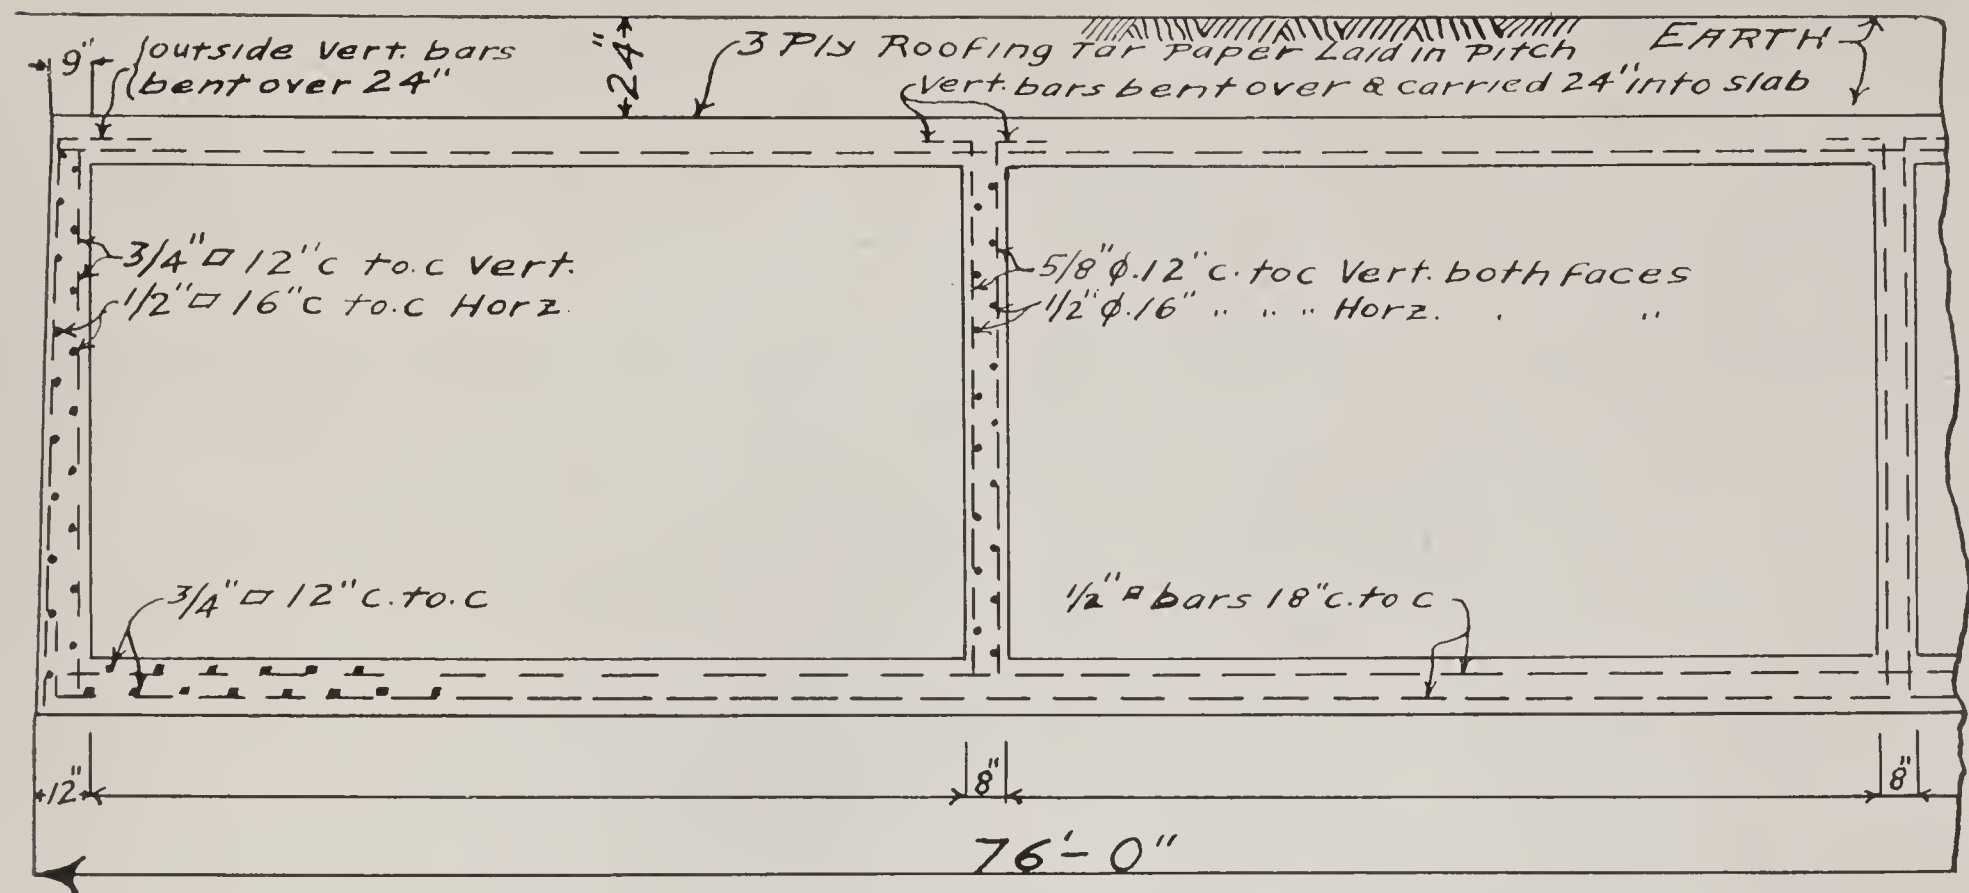 9"
outside vert. bars
bent over 24"
24"
3 Ply Roofing Tar Paper Laid in Pitch
EARTH
Vert. bars bent over & carried 24" into slab
3/4" □ 12" c to.c Vert.
1/2" □ 16" c to.c Horz.
5/8" φ.12" c. to c Vert. both faces
1/2" φ.16" " " " Horz. " "
3/4" □ 12" c. to. c
1/2" □ bars 18" c. to c
12"
8"
8"
76'-0"